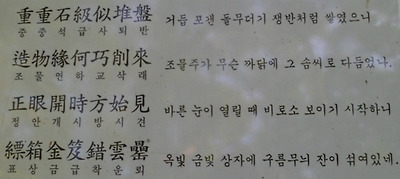 重重石級似堆盤 거듭 포갠 돌무더기 쟁반처럼 쌓였으니
중중석급사퇴반
造物緣何巧削來 조물주가 무슨 까닭에 그 솜씨로 다듬었나.
조물연하교삭래
正眼開時方始見 바른 눈이 열릴 때 비로소 보이기 시작하니
정안개시방시견
縹箱金笈錯雲罍 옥빛 금빛 상자에 구름무늬 잔이 섞여있네.
표상금급착운뢰